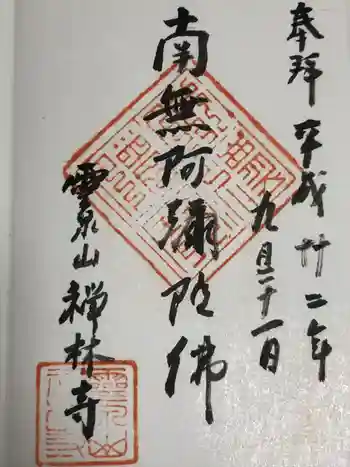 奉拜 平成廿二年
九月二十一日
南無阿彌陀佛
靈泉山 禅林寺